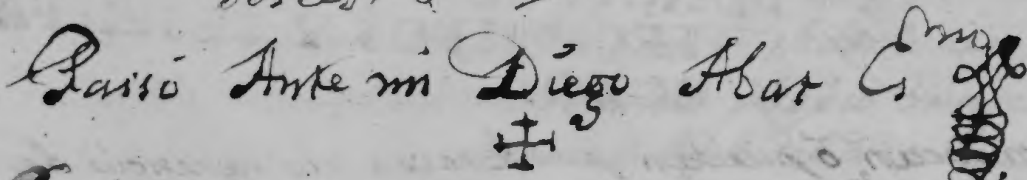 Passó Ante mi Diego Abat Es